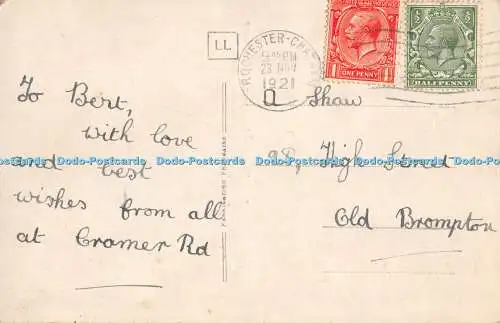 LL
ROCHESTER-CHATHAM
23 NOV
1921
ONE PENNY
HALFPENNY
To Bert,
with love
and best
wishes from all
at Cromer Rd
a Shaw
98, High Street
Old Brompton
Dodo-Postcards Dodo-Postcards Dodo-Postcards Dodo-Postcards Dodo-Postcards